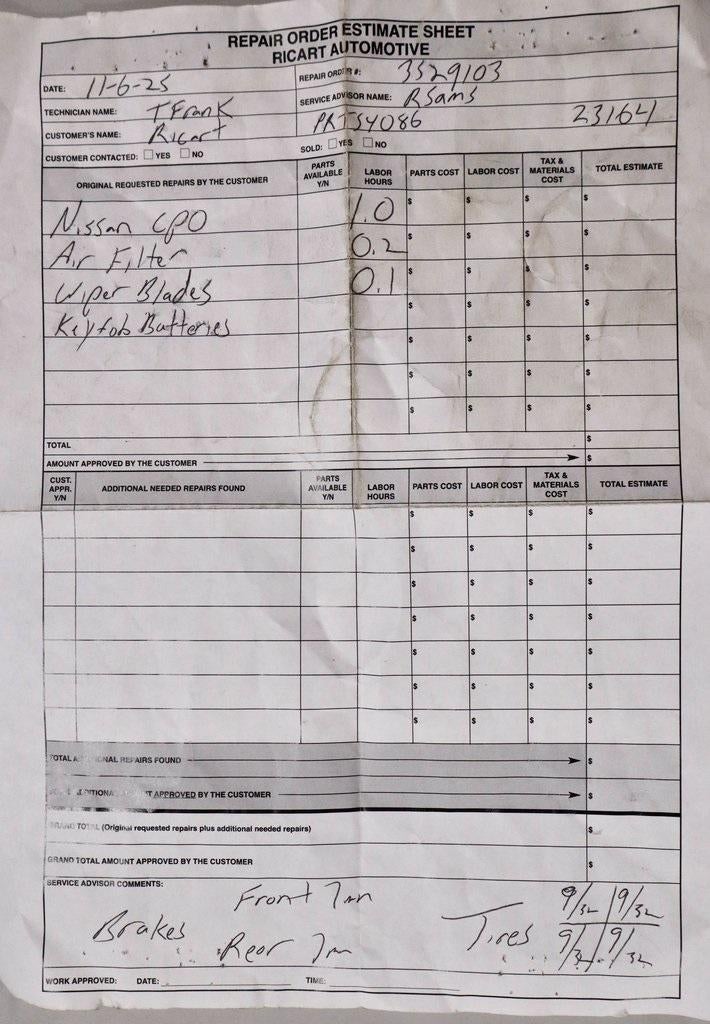 REPAIR ORDER ESTIMATE SHEET
RICART AUTOMOTIVE
DATE: 11-6-25
REPAIR ORDER #: 3529103
TECHNICIAN NAME: TFrank
SERVICE ADVISOR NAME: RSams
CUSTOMER'S NAME: Ricart
PRTS4086 23164
CUSTOMER CONTACTED: ☐ YES ☐ NO
SOLD: ☐ YES ☐ NO
ORIGINAL REQUESTED REPAIRS BY THE CUSTOMER PARTS AVAILABLE Y/N LABOR HOURS PARTS COST LABOR COST TAX & MATERIALS COST TOTAL ESTIMATE
Nissan CPO 1.0 $ $ $ $
Air Filter 0.2 $ $ $ $
Wiper Blades 0.1 $ $ $ $
Keyfob Batteries $ $ $ $
$ $ $ $
$ $ $ $
$ $ $ $
TOTAL $
AMOUNT APPROVED BY THE CUSTOMER $
CUST. APPR. Y/N ADDITIONAL NEEDED REPAIRS FOUND PARTS AVAILABLE Y/N LABOR HOURS PARTS COST LABOR COST TAX & MATERIALS COST TOTAL ESTIMATE
$ $ $ $
$ $ $ $
$ $ $ $
$ $ $ $
$ $ $ $
$ $ $ $
$ $ $ $
TOTAL ADDITIONAL REPAIRS FOUND $
APPROVED BY THE CUSTOMER $
GRAND TOTAL (Original requested repairs plus additional needed repairs) $
GRAND TOTAL AMOUNT APPROVED BY THE CUSTOMER $
SERVICE ADVISOR COMMENTS:
Brakes Front 7mm
Rear 7m
Tires 9/32 9/32
9/32 9/32
WORK APPROVED: DATE: TIME: